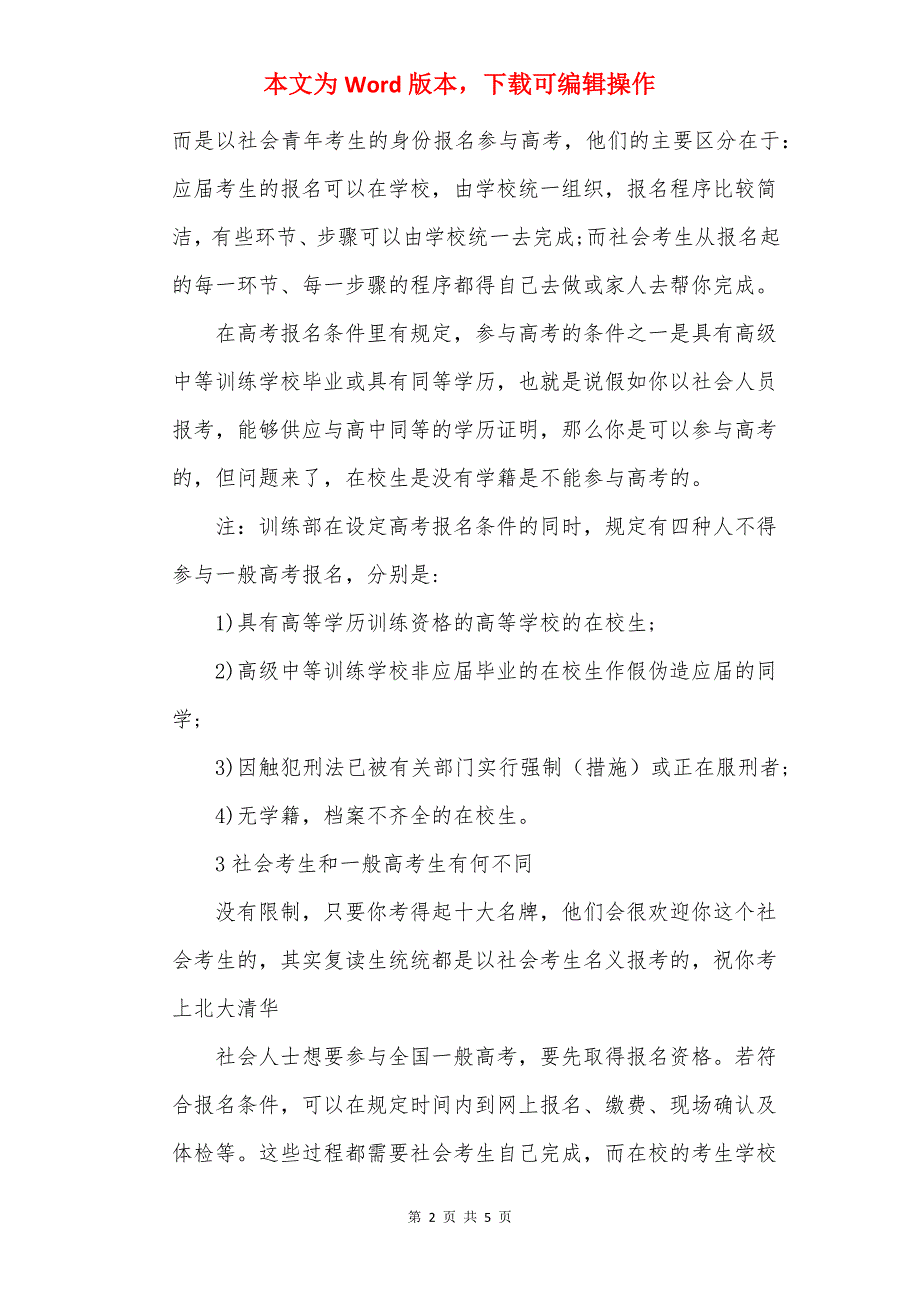 本文为 Word 版本，下载可编辑操作
而是以社会青年考生的身份报名参与高考，他们的主要区分在于：
应届考生的报名可以在学校，由学校统一组织，报名程序比较简
洁，有些环节、步骤可以由学校统一去完成;而社会考生从报名起
的每一环节、每一步骤的程序都得自己去做或家人去帮你完成。
在高考报名条件里有规定，参与高考的条件之一是具有高级
中等训练学校毕业或具有同等学历，也就是说假如你以社会人员
报考，能够供应与高中同等的学历证明，那么你是可以参与高考
的，但问题来了，在校生是没有学籍是不能参与高考的。
注：训练部在设定高考报名条件的同时，规定有四种人不得
参与一般高考报名，分别是:
1)具有高等学历训练资格的高等学校的在校生;
2)高级中等训练学校非应届毕业的在校生作假伪造应届的同
学;
3)因触犯刑法已被有关部门实行强制（措施）或正在服刑者;
4)无学籍，档案不齐全的在校生。
3 社会考生和一般高考生有何不同
没有限制，只要你考得起十大名牌，他们会很欢迎你这个社
会考生的，其实复读生统统都是以社会考生名义报考的，祝你考
上北大清华
社会人士想要参与全国一般高考，要先取得报名资格。若符
合报名条件，可以在规定时间内到网上报名、缴费、现场确认及
体检等。这些过程都需要社会考生自己完成，而在校的考生学校
第 2 页 共 5 页